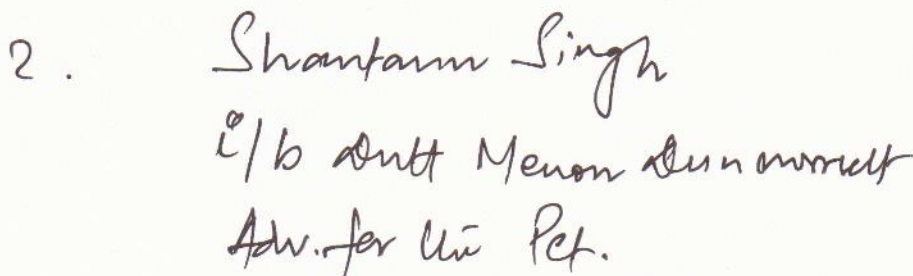 2. Shantanu Singh
i/b Dutt Menon Dunmorrsett
Adv. for the Pet.